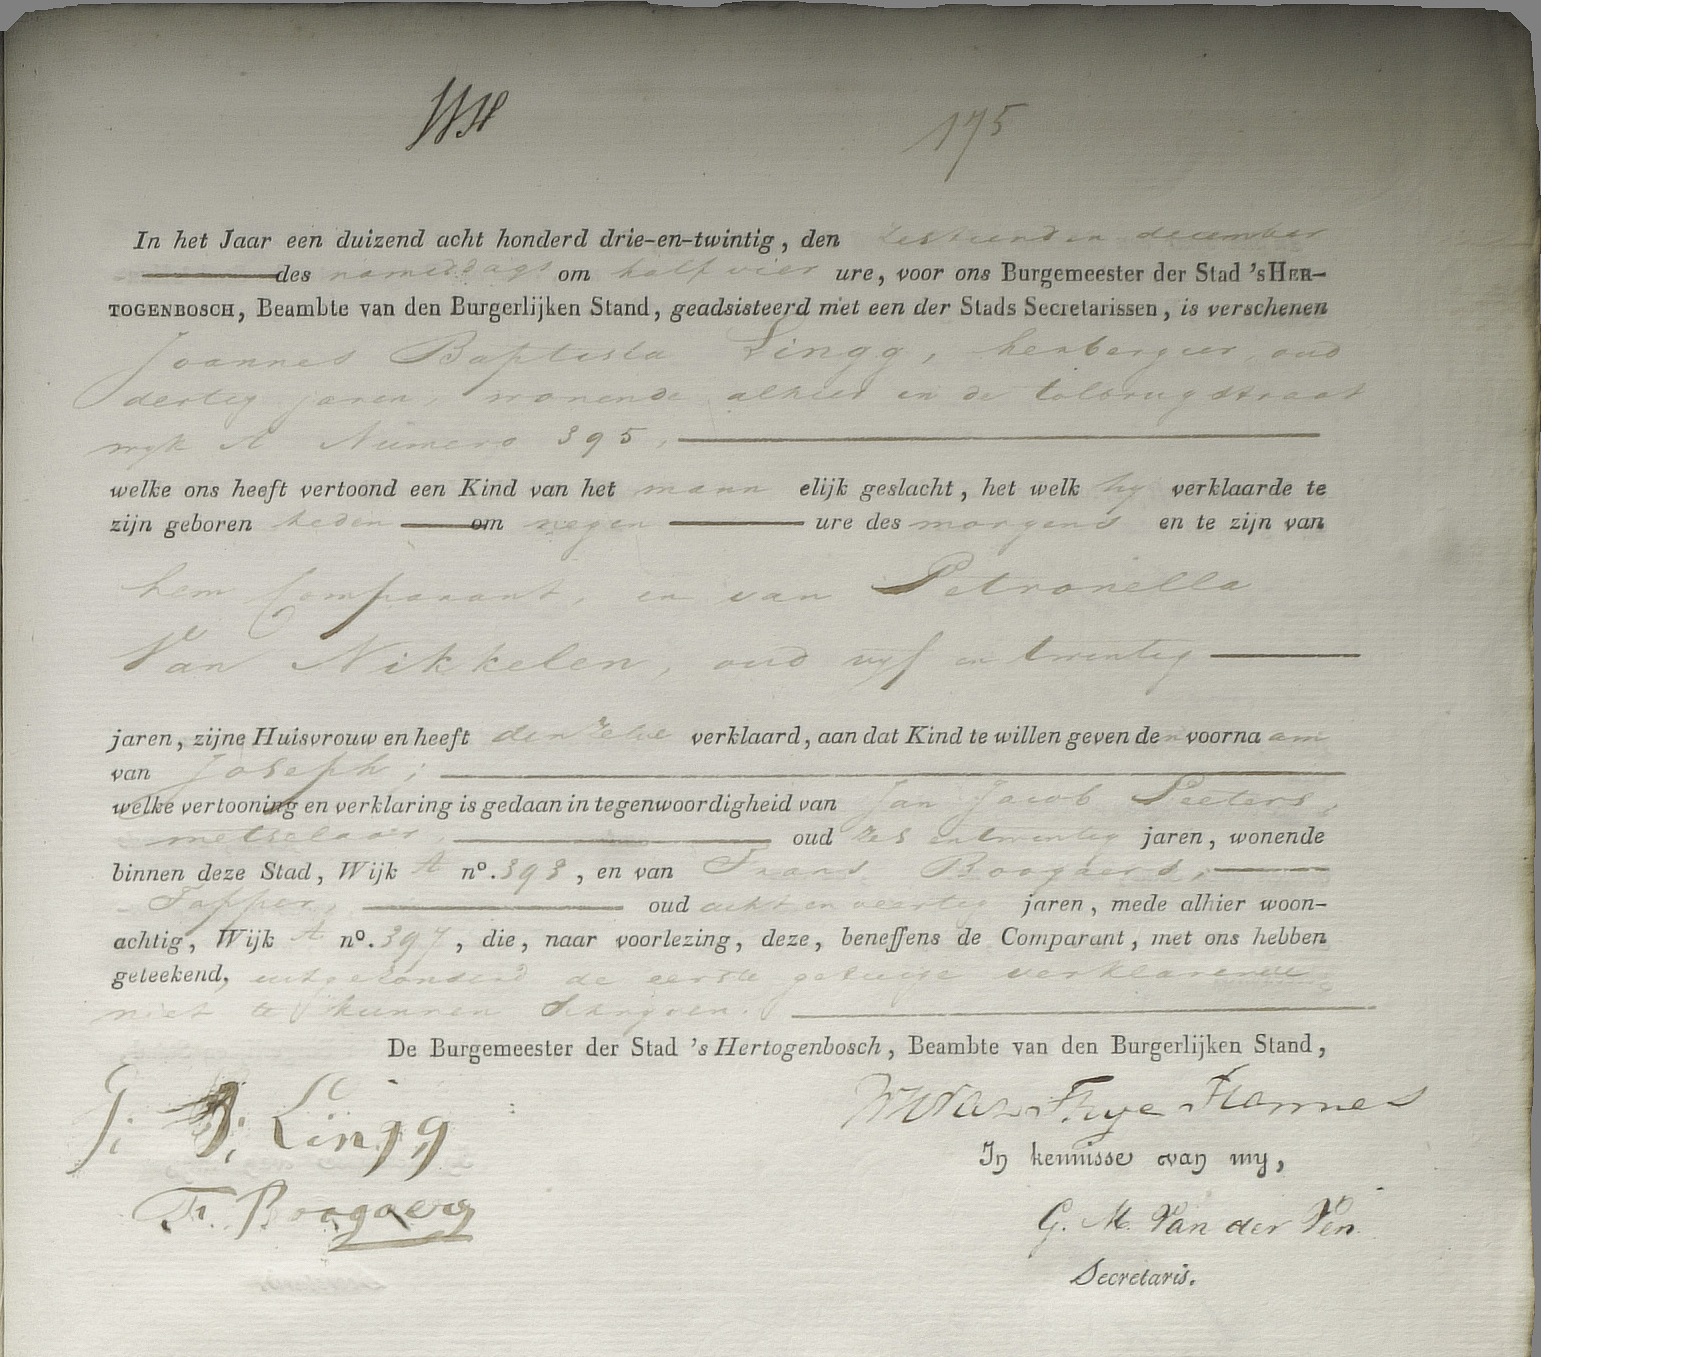 175
In het Jaar een duizend acht honderd drie-en-twintig, den zestienden december
des namiddags om half vier ure, voor ons Burgemeester der Stad 'sHER-
TOGENBOSCH, Beambte van den Burgerlijken Stand, geadsisteerd met een der Stads Secretarissen, is verschenen
Joannes Baptista Lingg, herbergier, oud
dertig jaren, wonende alhier in de tolbrugstraat
wyk A Numero 395,
welke ons heeft vertoond een Kind van het mann elijk geslacht, het welk hy verklaarde te
zijn geboren heden om negen ure des morgens en te zijn van
hem Comparant, en van Petronella
Van Nikkelen, oud vyf en twintig
jaren, zijne Huisvrouw en heeft denzelve verklaard, aan dat Kind te willen geven den voorna am
van Joseph;
welke vertooning en verklaring is gedaan in tegenwoordigheid van Jan Jacob Peeters,
metselaar, oud zes en twintig jaren, wonende
binnen deze Stad, Wijk A nº. 393, en van Frans Boogaers,
Tapper, oud acht en veertig jaren, mede alhier woon-
achtig, Wijk A nº. 397, die, naar voorlezing, deze, beneffens de Comparant, met ons hebben
geteekend, uitgezonderd de eerste getuige verklarende
niet te kunnen schryven.
De Burgemeester der Stad 's Hertogenbosch, Beambte van den Burgerlijken Stand,
J. B. Lingg
Fr. Boogaers
In kennisse van my,
G. M. Van der Ven
Secretaris.